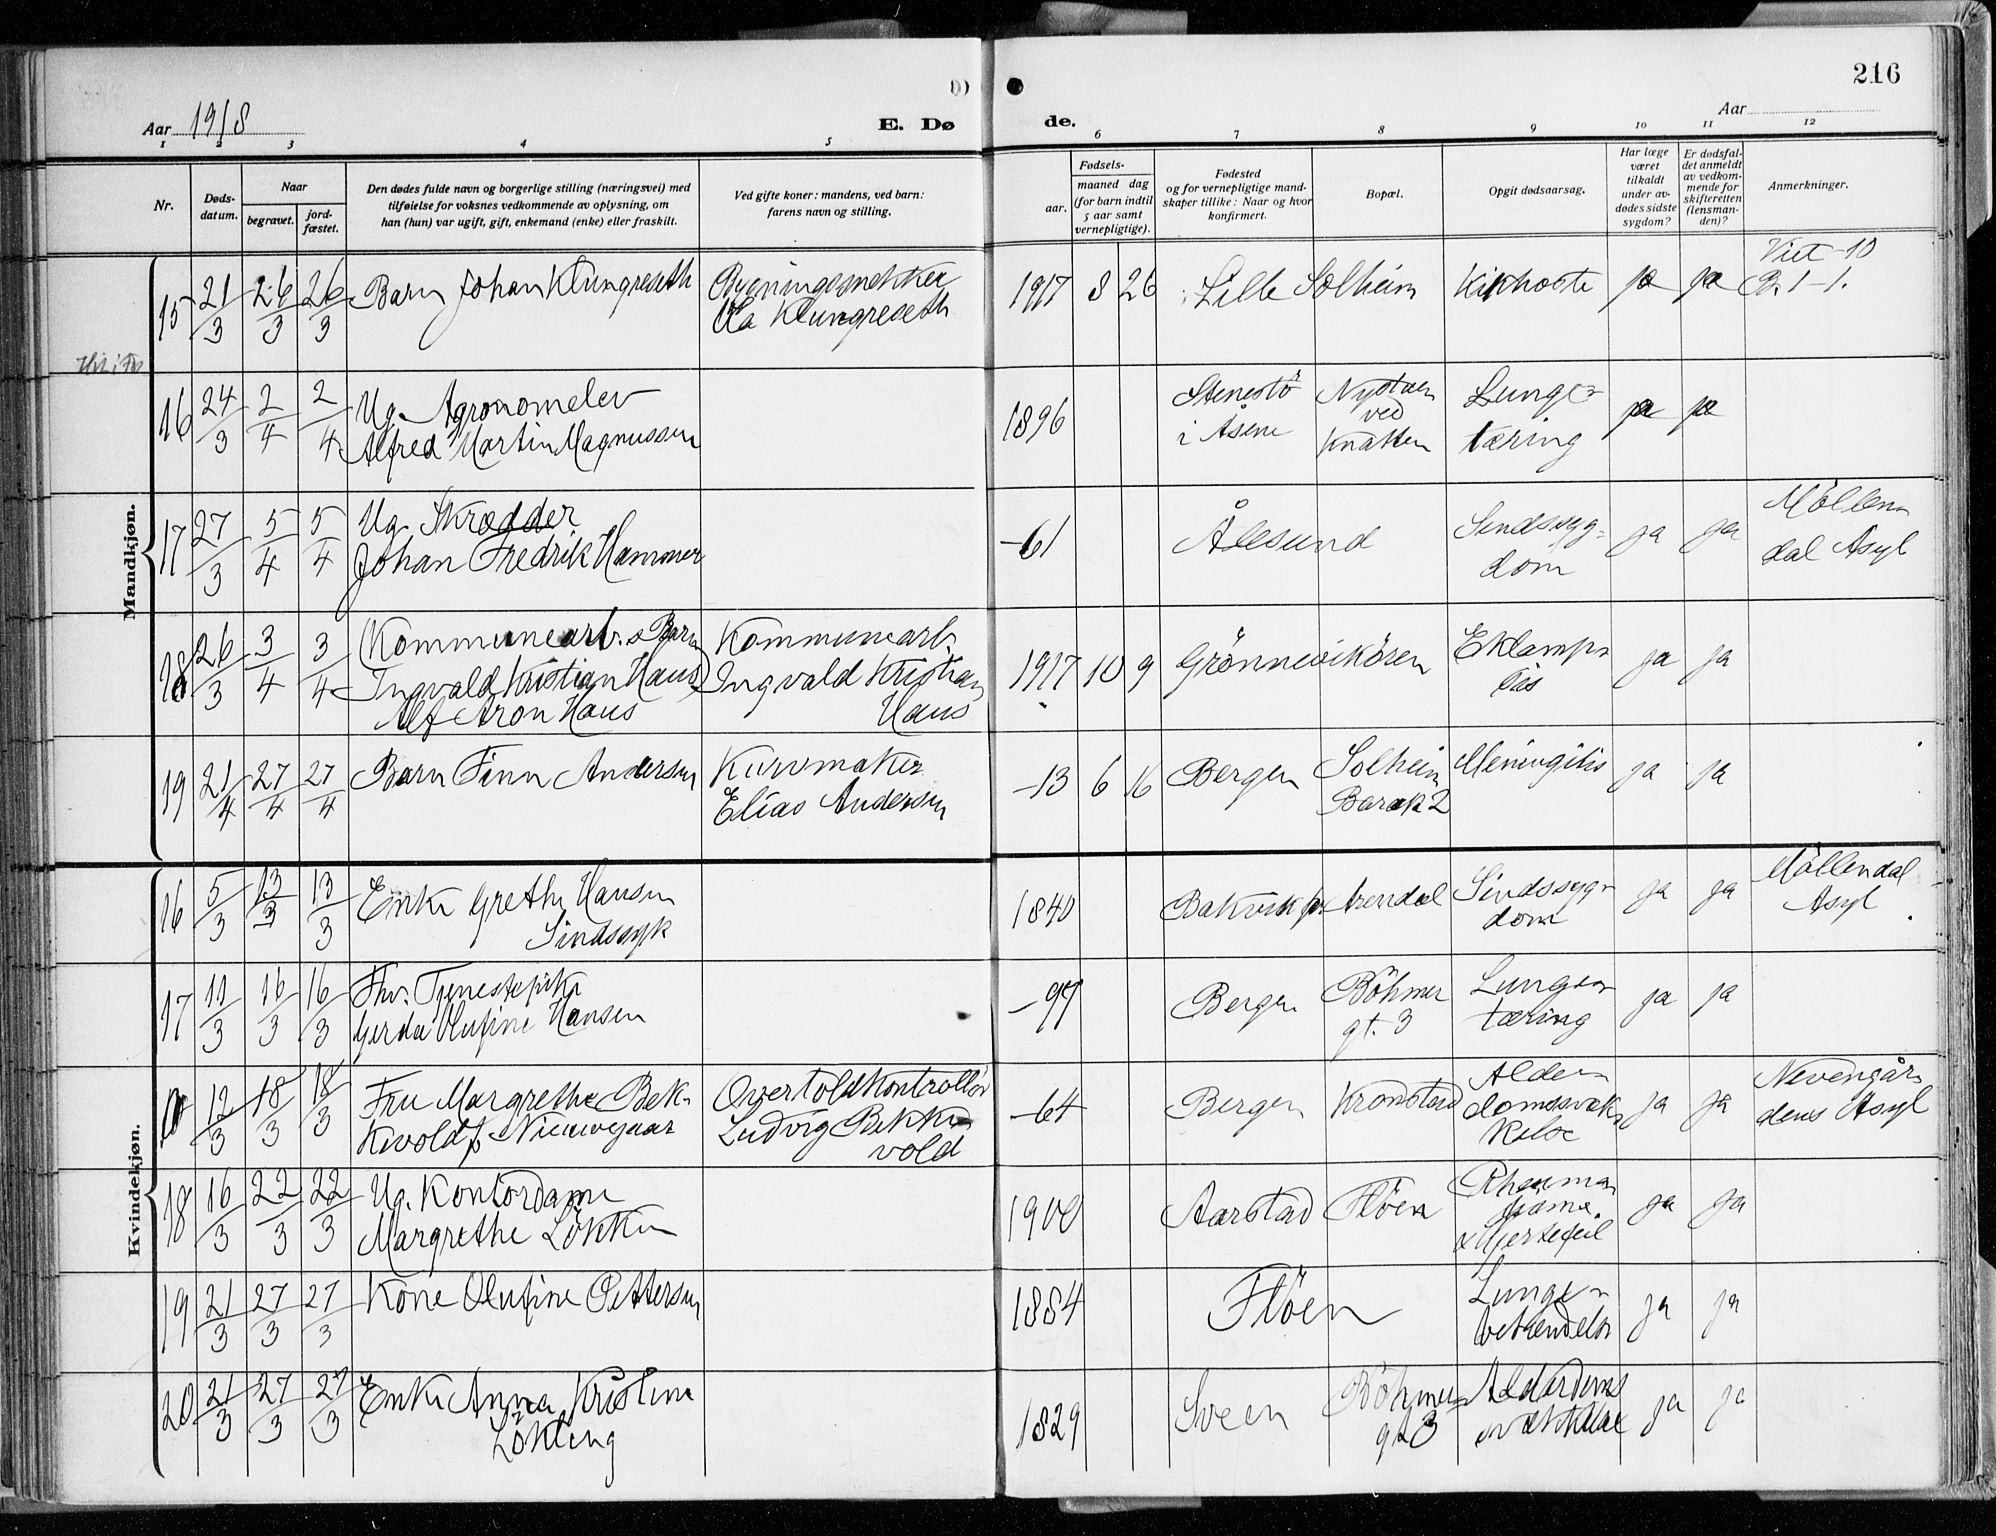 216
Aar 1918
E. Dø
de.
Aar
1 2 3 4 5 6 7 8 9 10 11 12
Nr.
Døds-
datum.
Naar
begravet.
jord-
fæstet.
Den dødes fulde navn og borgerlige stilling (næringsvei) med
tilføielse for voksnes vedkommende av oplysning, om
han (hun) var ugift, gift, enkemand (enke) eller fraskilt.
Ved gifte koner: mandens, ved barn:
farens navn og stilling.
Fødsels-
aar.
maaned dag
(for barn indtil
5 aar samt
vernepligtige).
Fødested
og for vernepligtige mand-
skaper tillike: Naar og hvor
konfirmert.
Bopæl.
Opgit dødsaarsag.
Har læge
været
tilkaldt
under av-
dødes sidste
sygdom?
Er dødsfal-
det anmeldt
av vedkom-
mende for
skifteretten
(lensman-
den)?
Anmerkninger.
Mandkjøn.
15 21/3 26/3 26/3 Barn Johan Klungreseth
Bygningssnekker
Ola Klungreseth
1917 8 26 Lille Solheim Kikhoste ja ja
16 24/3 2/4 2/4 Ug. Agronomelev
Alfred Martin Magnussen
1896
Stenestö
i Åsene
ved
Knatten
Lunge-
tæring
ja ja
17 27/3 5/4 5/4 Ug. Skrædder
Johan Fredrik Hammer
-61 Ålesund
Sindssyg-
dom
ja ja
Möllen
dal Asyl
18 26/3 3/4 3/4 Kommunearb.s Barn
Ingvald Kristian Haus
Alf Aron Haus
Kommunearb.
Ingvald Kristian
Haus
1917 10 9 Grönnevikören
Eklamp-
sis
ja ja
19 21/4 27/4 27/4 Barn Finn Andersen
Kurvmaker
Elias Andersen
-13 6 16 Bergen
Solheim
Barak 2
Meningitis ja ja
Kvindekjøn.
16 5/3 13/3 13/3 Enke Grethe Hansen
Sindssyk
1840 Arendal
Sindssyg-
dom
ja ja
Möllendal
Asyl
17 11/3 16/3 16/3 Fhv. Tjenestepike
Gerda Olufine Hansen
-97 Bergen
Böhmer
gt. 3
Lunge-
tæring
ja ja
12/3 18/3 18/3 Fru Margrethe Bek-
kevold f. Nieuwejaar
Overtoldkontrollör
Ludvig Bekke
vold
-64 Bergen Kronstad
Alder-
domssvæk-
kelse
ja ja
Nevengår-
dens Asyl
18 16/3 22/3 22/3 Ug. Kontordame
Margrethe Lökken
1900 Aarstad Flöen
& Hjertefeil
ja ja
19 21/3 27/3 27/3 Kone Olufine Pettersen
1884 Flöen
Lunge-
betændelse
ja ja
20 21/3 27/3 27/3 Enke Anna Kristine
Lökling
1829 Sveen
Böhmer-
gt 3
Alderdoms
svækkelse
ja ja